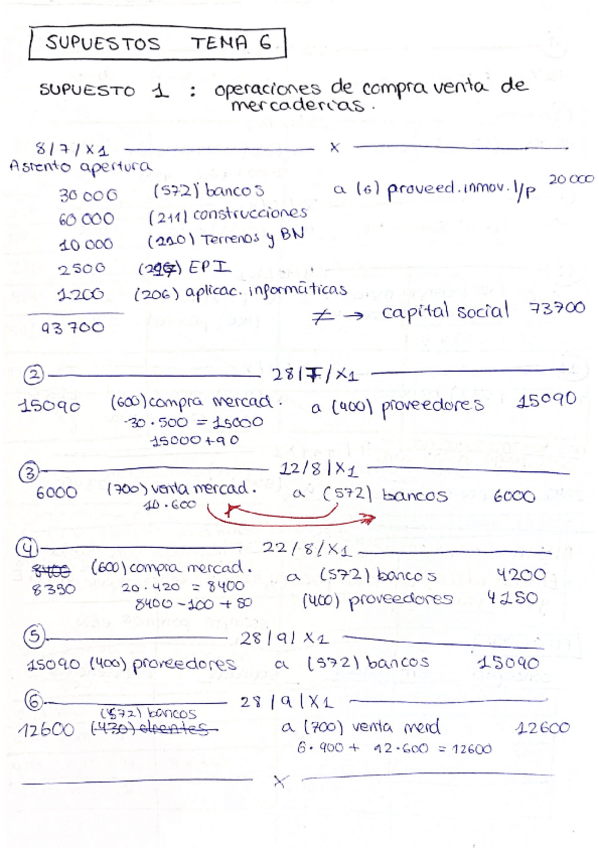 SUPUESTOS TEMA 6
SUPUESTO 1 : operaciones de compra venta de
mercaderias.
8/7/X1 x
Asiento apertura
30 000 (572) bancos a (6) proveed. inmov. l/p 20 000
60 000 (211) construcciones
10 000 (210) Terrenos y BN
2500 (217) EPI
1200 (206) aplicac. informáticas
93 700 ≠ → capital social 73700
② 28/7/X1
15090 (600) compra mercad. a (400) proveedores 15090
30·500 = 15000
15000+90
③ 12/8/X1
6000 (700) venta mercad. a (572) bancos 6000
10·600
④ 22/8/X1
8400 (600) compra mercad. a (572) bancos 4200
8390 20·420 = 8400 (400) proveedores 4180
8400-100+80
⑤ 28/9/X1
15090 (400) proveedores a (572) bancos 15090
⑥ 28/9/X1
(572) bancos
12600 (430) clientes a (700) venta merd 12600
6·900 + 12·600 = 12600
x